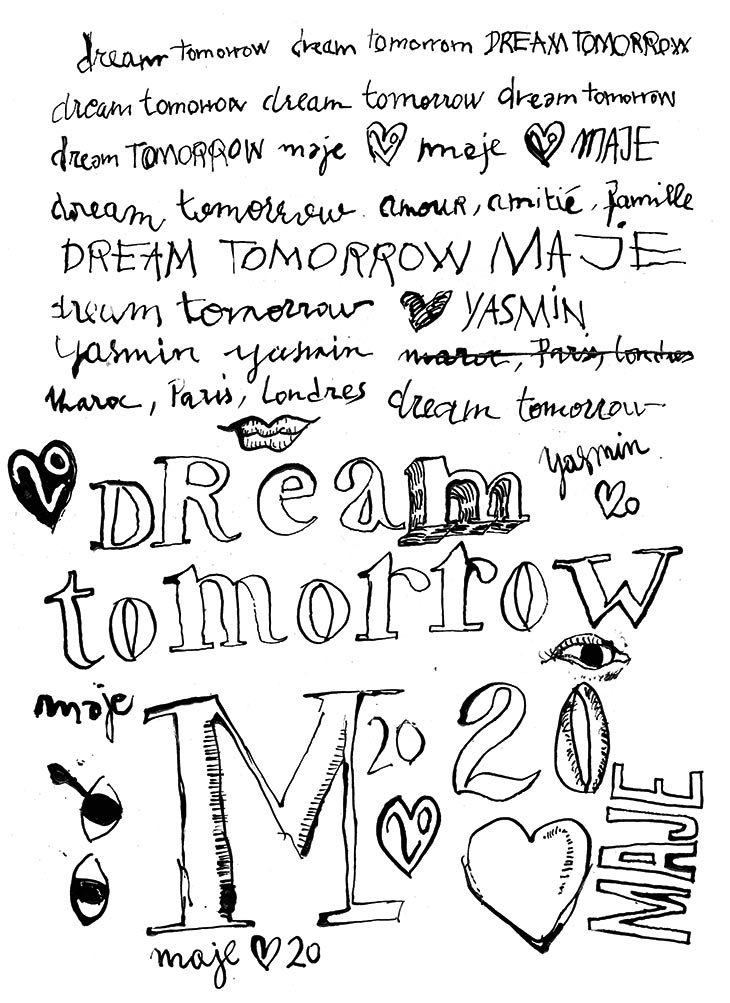 dream tomorrow dream tomorrow DREAM TOMORROW
dream tomorrow dream tomorrow dream tomorrow
dream TOMORROW maje 20 maje 20 MAJE
dream tomorrow. amour, amitié, famille
DREAM TOMORROW MAJE
dream tomorrow YASMIN
Yasmin yasmin maroc, Paris, Londres
Maroc, Paris, Londres dream tomorrow
yasmin
20
20
DReam
tomorrow
maje
M
20
20
20
MAJE
maje 20